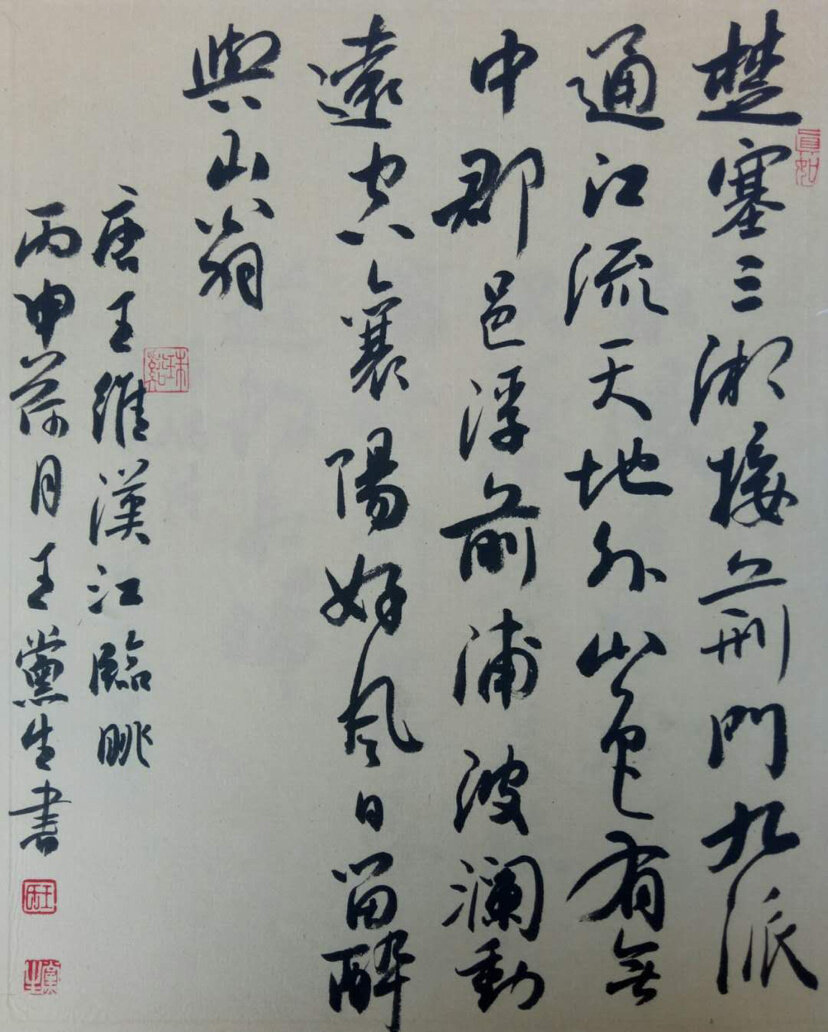 楚塞三湘接荊門九派
通江流天地外山色有無
中郡邑浮前浦波瀾動
遠空襄陽好風日留醉
與山翁
唐王維漢江臨眺
丙申荷月王黨生書
真如